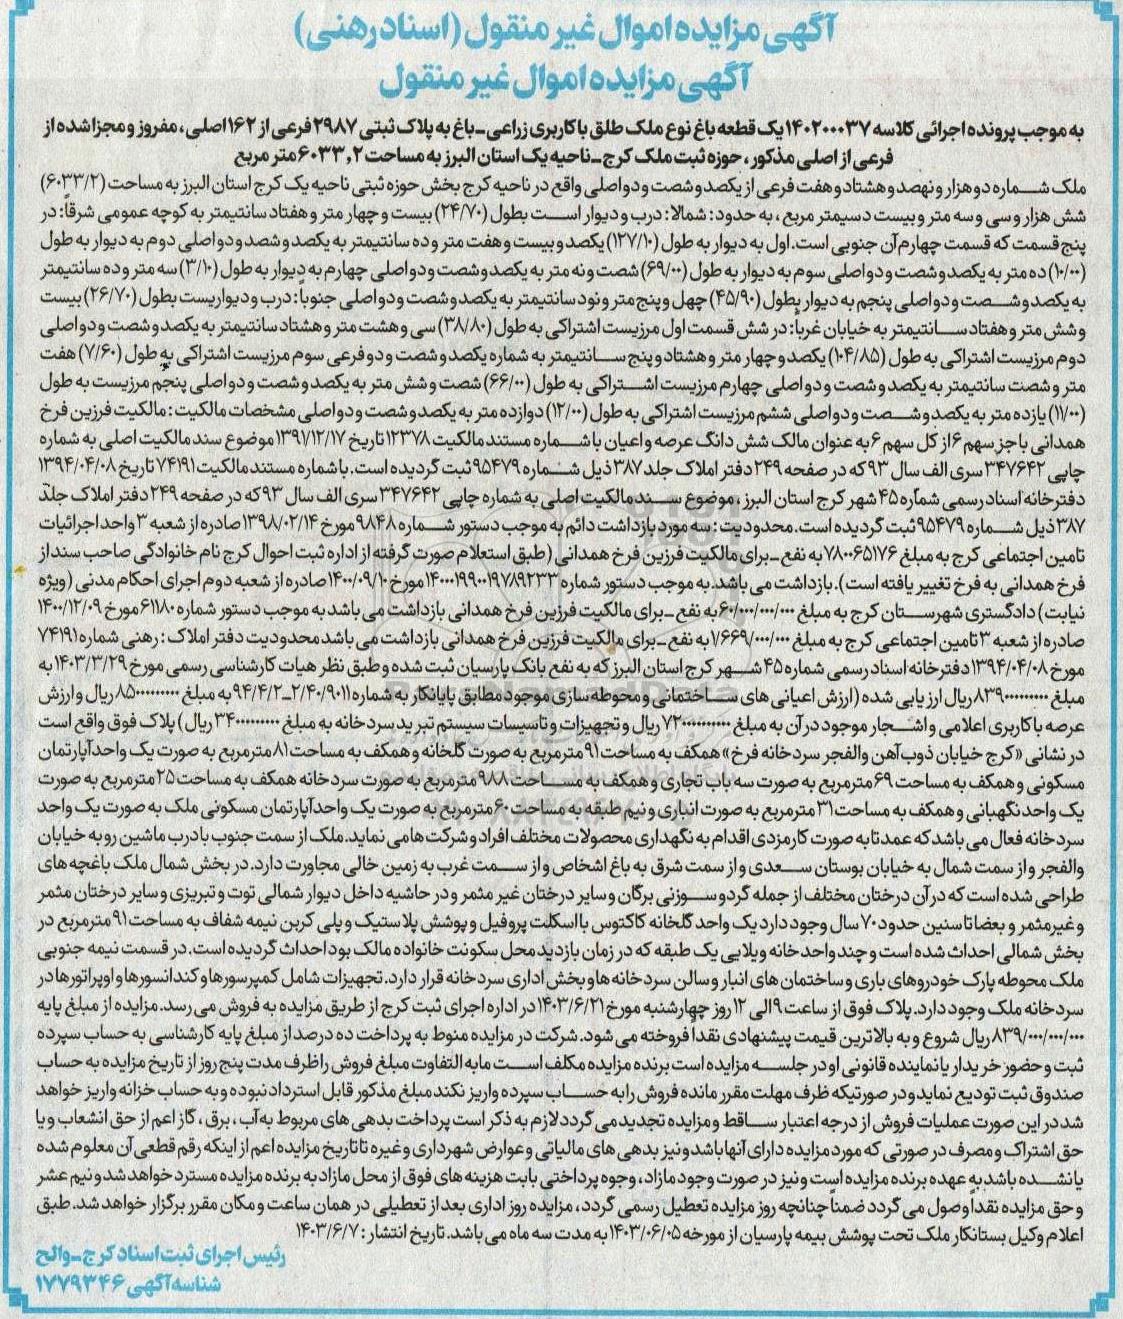 آگهی مزایده اموال غیر منقول (اسناد رهنی)
آگهی مزایده اموال غیر منقول
به موجب پرونده اجرائی کلاسه ۱۴۰۲۰۰۰۳۷ یک قطعه باغ نوع ملک طلق با کاربری زراعی - باغ به پلاک ثبتی ۲۹۸۷ فرعی از ۱۶۲ اصلی، مفروز و مجزا شده از
فرعی از اصلی مذکور، حوزه ثبت ملک کرج - ناحیه یک استان البرز به مساحت ۶۰۳۳٫۲ متر مربع
ملک شماره دو هزار و نهصد و هشتاد و هفت فرعی از یکصد و شصت و دو اصلی واقع در ناحیه کرج بخش حوزه ثبتی ناحیه یک کرج استان البرز به مساحت (۶۰۳۳/۲)
شش هزار و سی و سه متر و بیست دسیمتر مربع، به حدود: شمالا: درب و دیوار است بطول (۲۴/۷۰) بیست و چهار متر و هفتاد سانتیمتر به کوچه عمومی شرقاً: در
پنج قسمت که قسمت چهارم آن جنوبی است. اول به دیوار به طول (۱۲۷/۱۰) یکصد و بیست و هفت متر و ده سانتیمتر به یکصد و شصد و دو اصلی دوم به دیوار به طول
(۱۰/۰۰) ده متر به یکصد و شصت و دو اصلی سوم به دیوار به طول (۶۹/۰۰) شصت و نه متر به یکصد و شصت و دو اصلی چهارم به دیوار به طول (۳/۱۰) سه متر و ده سانتیمتر
به یکصد و شصت و دو اصلی پنجم به دیوار بطول (۴۵/۹۰) چهل و پنج متر و نود سانتیمتر به یکصد و شصت و دو اصلی جنوباً: درب و دیواریست بطول (۲۶/۷۰) بیست
و شش متر و هفتاد سانتیمتر به خیابان غرباً: در شش قسمت اول مرزیست اشتراکی به طول (۳۸/۸۰) سی و هشت متر و هشتاد سانتیمتر به یکصد و شصت و دو اصلی
دوم مرزیست اشتراکی به طول (۱۰۴/۸۵) یکصد و چهار متر و هشتاد و پنج سانتیمتر به شماره یکصد و شصت و دو فرعی سوم مرزیست اشتراکی به طول (۷/۶۰) هفت
متر و شصت سانتیمتر به یکصد و شصت و دو اصلی چهارم مرزیست اشتراکی به طول (۶۶/۰۰) شصت و شش متر به یکصد و شصت و دو اصلی پنجم مرزیست به طول
(۱۱/۰۰) یازده متر به یکصد و شصت و دو اصلی ششم مرزیست اشتراکی به طول (۱۲/۰۰) دوازده متر به یکصد و شصت و دو اصلی مشخصات مالکیت: مالکیت فرزین فرخ
همدانی با جز سهم ۶ از کل سهم ۶ به عنوان مالک شش دانگ عرصه و اعیان با شماره مستند مالکیت ۱۲۳۷۸ تاریخ ۱۳۹۱/۱۲/۱۷ موضوع سند مالکیت اصلی به شماره
چاپی ۳۴۷۶۴۲ سری الف سال ۹۳ که در صفحه ۲۴۹ دفتر املاک جلد ۳۸۷ ذیل شماره ۹۵۴۷۹ ثبت گردیده است. با شماره مستند مالکیت ۷۴۱۹۱ تاریخ ۱۳۹۴/۰۴/۰۸
دفترخانه اسناد رسمی شماره ۴۵ شهر کرج استان البرز، موضوع سند مالکیت اصلی به شماره چاپی ۳۴۷۶۴۲ سری الف سال ۹۳ که در صفحه ۲۴۹ دفتر املاک جلد
۳۸۷ ذیل شماره ۹۵۴۷۹ ثبت گردیده است. محدودیت: سه مورد بازداشت دائم به موجب دستور شماره ۹۸۴۸ مورخ ۱۳۹۸/۰۲/۱۴ صادره از شعبه ۳ واحد اجرائیات
تامین اجتماعی کرج به مبلغ ۷۸۰۰۶۵۱۷۶ به نفع - برای مالکیت فرزین فرخ همدانی (طبق استعلام صورت گرفته از اداره ثبت احوال کرج نام خانوادگی صاحب سند از
فرخ همدانی به فرخ تغییر یافته است). بازداشت می باشد. به موجب دستور شماره ۱۴۰۰۰۱۹۹۰۰۱۹۷۸۹۲۳۳ مورخ ۱۴۰۰/۰۹/۱۰ صادره از شعبه دوم اجرای احکام مدنی (ویژه
نیابت) دادگستری شهرستان کرج به مبلغ ۶۰/۰۰۰/۰۰۰/۰۰۰ به نفع - برای مالکیت فرزین فرخ همدانی بازداشت می باشد به موجب دستور شماره ۶۱۱۸۰ مورخ ۱۴۰۰/۱۲/۰۹
صادره از شعبه ۳ تامین اجتماعی کرج به مبلغ ۱/۶۶۹/۰۰۰/۰۰۰ به نفع - برای مالکیت فرزین فرخ همدانی بازداشت می باشد محدودیت دفتر املاک: رهنی شماره ۷۴۱۹۱
مورخ ۱۳۹۴/۰۴/۰۸ دفترخانه اسناد رسمی شماره ۴۵ شهر کرج استان البرز که به نفع بانک پارسیان ثبت شده و طبق نظر هیات کارشناسی رسمی مورخ ۱۴۰۳/۳/۲۹ به
مبلغ ۸۳۹۰۰۰۰۰۰۰۰۰ ریال ارزیابی شده (ارزش اعیانی های ساختمانی و محوطه سازی موجود مطابق پایانکار به شماره ۲/۴۰/۹۰۱۱-۹۴/۴/۲ به مبلغ ۸۵۰۰۰۰۰۰۰۰۰ ریال و ارزش
عرصه با کاربری اعلامی و اشجار موجود در آن به مبلغ ۷۲۰۰۰۰۰۰۰۰۰۰ ریال و تجهیزات و تاسیسات سیستم تبرید سردخانه به مبلغ ۳۴۰۰۰۰۰۰۰۰۰ ریال) پلاک فوق واقع است
در نشانی «کرج خیابان ذوب آهن والفجر سردخانه فرخ» همکف به مساحت ۹۱ مترمربع به صورت گلخانه و همکف به مساحت ۸۱ مترمربع به صورت یک واحد آپارتمان
مسکونی و همکف به مساحت ۶۹ مترمربع به صورت سه باب تجاری و همکف به مساحت ۹۸۸ مترمربع به صورت سردخانه همکف به مساحت ۲۵ مترمربع به صورت
یک واحد نگهبانی و همکف به مساحت ۳۱ مترمربع به صورت انباری و نیم طبقه به مساحت ۶۰ مترمربع به صورت یک واحد آپارتمان مسکونی ملک به صورت یک واحد
سردخانه فعال می باشد که عمدتا به صورت کارمزدی اقدام به نگهداری محصولات مختلف افراد و شرکت ها می نماید. ملک از سمت جنوب با درب ماشین رو به خیابان
والفجر و از سمت شمال به خیابان بوستان سعدی و از سمت شرق به باغ اشخاص و از سمت غرب به زمین خالی مجاورت دارد. در بخش شمال ملک باغچه های
طراحی شده است که در آن درختان مختلف از جمله گردو سوزنی برگان و سایر درختان غیر مثمر و در حاشیه داخل دیوار شمالی توت و تبریزی و سایر درختان مثمر
و غیرمثمر و بعضا تا سنین حدود ۷۰ سال وجود دارد یک واحد گلخانه کاکتوس با اسکلت پروفیل و پوشش پلاستیک و پلی کربن نیمه شفاف به مساحت ۹۱ مترمربع در
بخش شمالی احداث شده است و چند واحد خانه ویلایی یک طبقه که در زمان بازدید محل سکونت خانواده مالک بود احداث گردیده است. در قسمت نیمه جنوبی
ملک محوطه پارک خودروهای باری و ساختمان های انبار و سالن سردخانه ها و بخش اداری سردخانه قرار دارد. تجهیزات شامل کمپرسورها و کندانسورها و اوپراتورها در
سردخانه ملک وجود دارد. پلاک فوق از ساعت ۹ الی ۱۲ روز چهارشنبه مورخ ۱۴۰۳/۶/۲۱ در اداره اجرای ثبت کرج از طریق مزایده به فروش می رسد. مزایده از مبلغ پایه
۸۳۹/۰۰۰/۰۰۰/۰۰۰ ریال شروع و به بالاترین قیمت پیشنهادی نقداً فروخته می شود. شرکت در مزایده منوط به پرداخت ده درصد از مبلغ پایه کارشناسی به حساب سپرده
ثبت و حضور خریدار یا نماینده قانونی او در جلسه مزایده است برنده مزایده مکلف است مابه التفاوت مبلغ فروش را ظرف مدت پنج روز از تاریخ مزایده به حساب
صندوق ثبت تودیع نماید و در صورتیکه ظرف مهلت مقرر مانده فروش را به حساب سپرده واریز نکند مبلغ مذکور قابل استرداد نبوده و به حساب خزانه واریز خواهد
شد در این صورت عملیات فروش از درجه اعتبار ساقط و مزایده تجدید می گردد لازم به ذکر است پرداخت بدهی های مربوط به آب، برق، گاز اعم از حق انشعاب و یا
حق اشتراک و مصرف در صورتی که مورد مزایده دارای آنها باشد و نیز بدهی های مالیاتی و عوارض شهرداری و غیره تا تاریخ مزایده اعم از اینکه رقم قطعی آن معلوم شده
یا نشده باشد به عهده برنده مزایده است و نیز در صورت وجود مازاد، وجوه پرداختی بابت هزینه های فوق از محل مازاد به برنده مزایده مسترد خواهد شد و نیم عشر
و حق مزایده نقداً وصول می گردد ضمناً چنانچه روز مزایده تعطیل رسمی گردد، مزایده روز اداری بعد از تعطیلی در همان ساعت و مکان مقرر برگزار خواهد شد. طبق
اعلام وکیل بستانکار ملک تحت پوشش بیمه پارسیان از مورخه ۱۴۰۳/۰۶/۰۵ به مدت سه ماه می باشد. تاریخ انتشار: ۱۴۰۳/۶/۷
رئیس اجرای ثبت اسناد کرج - والح
شناسه آگهی ۱۷۷۹۳۴۶